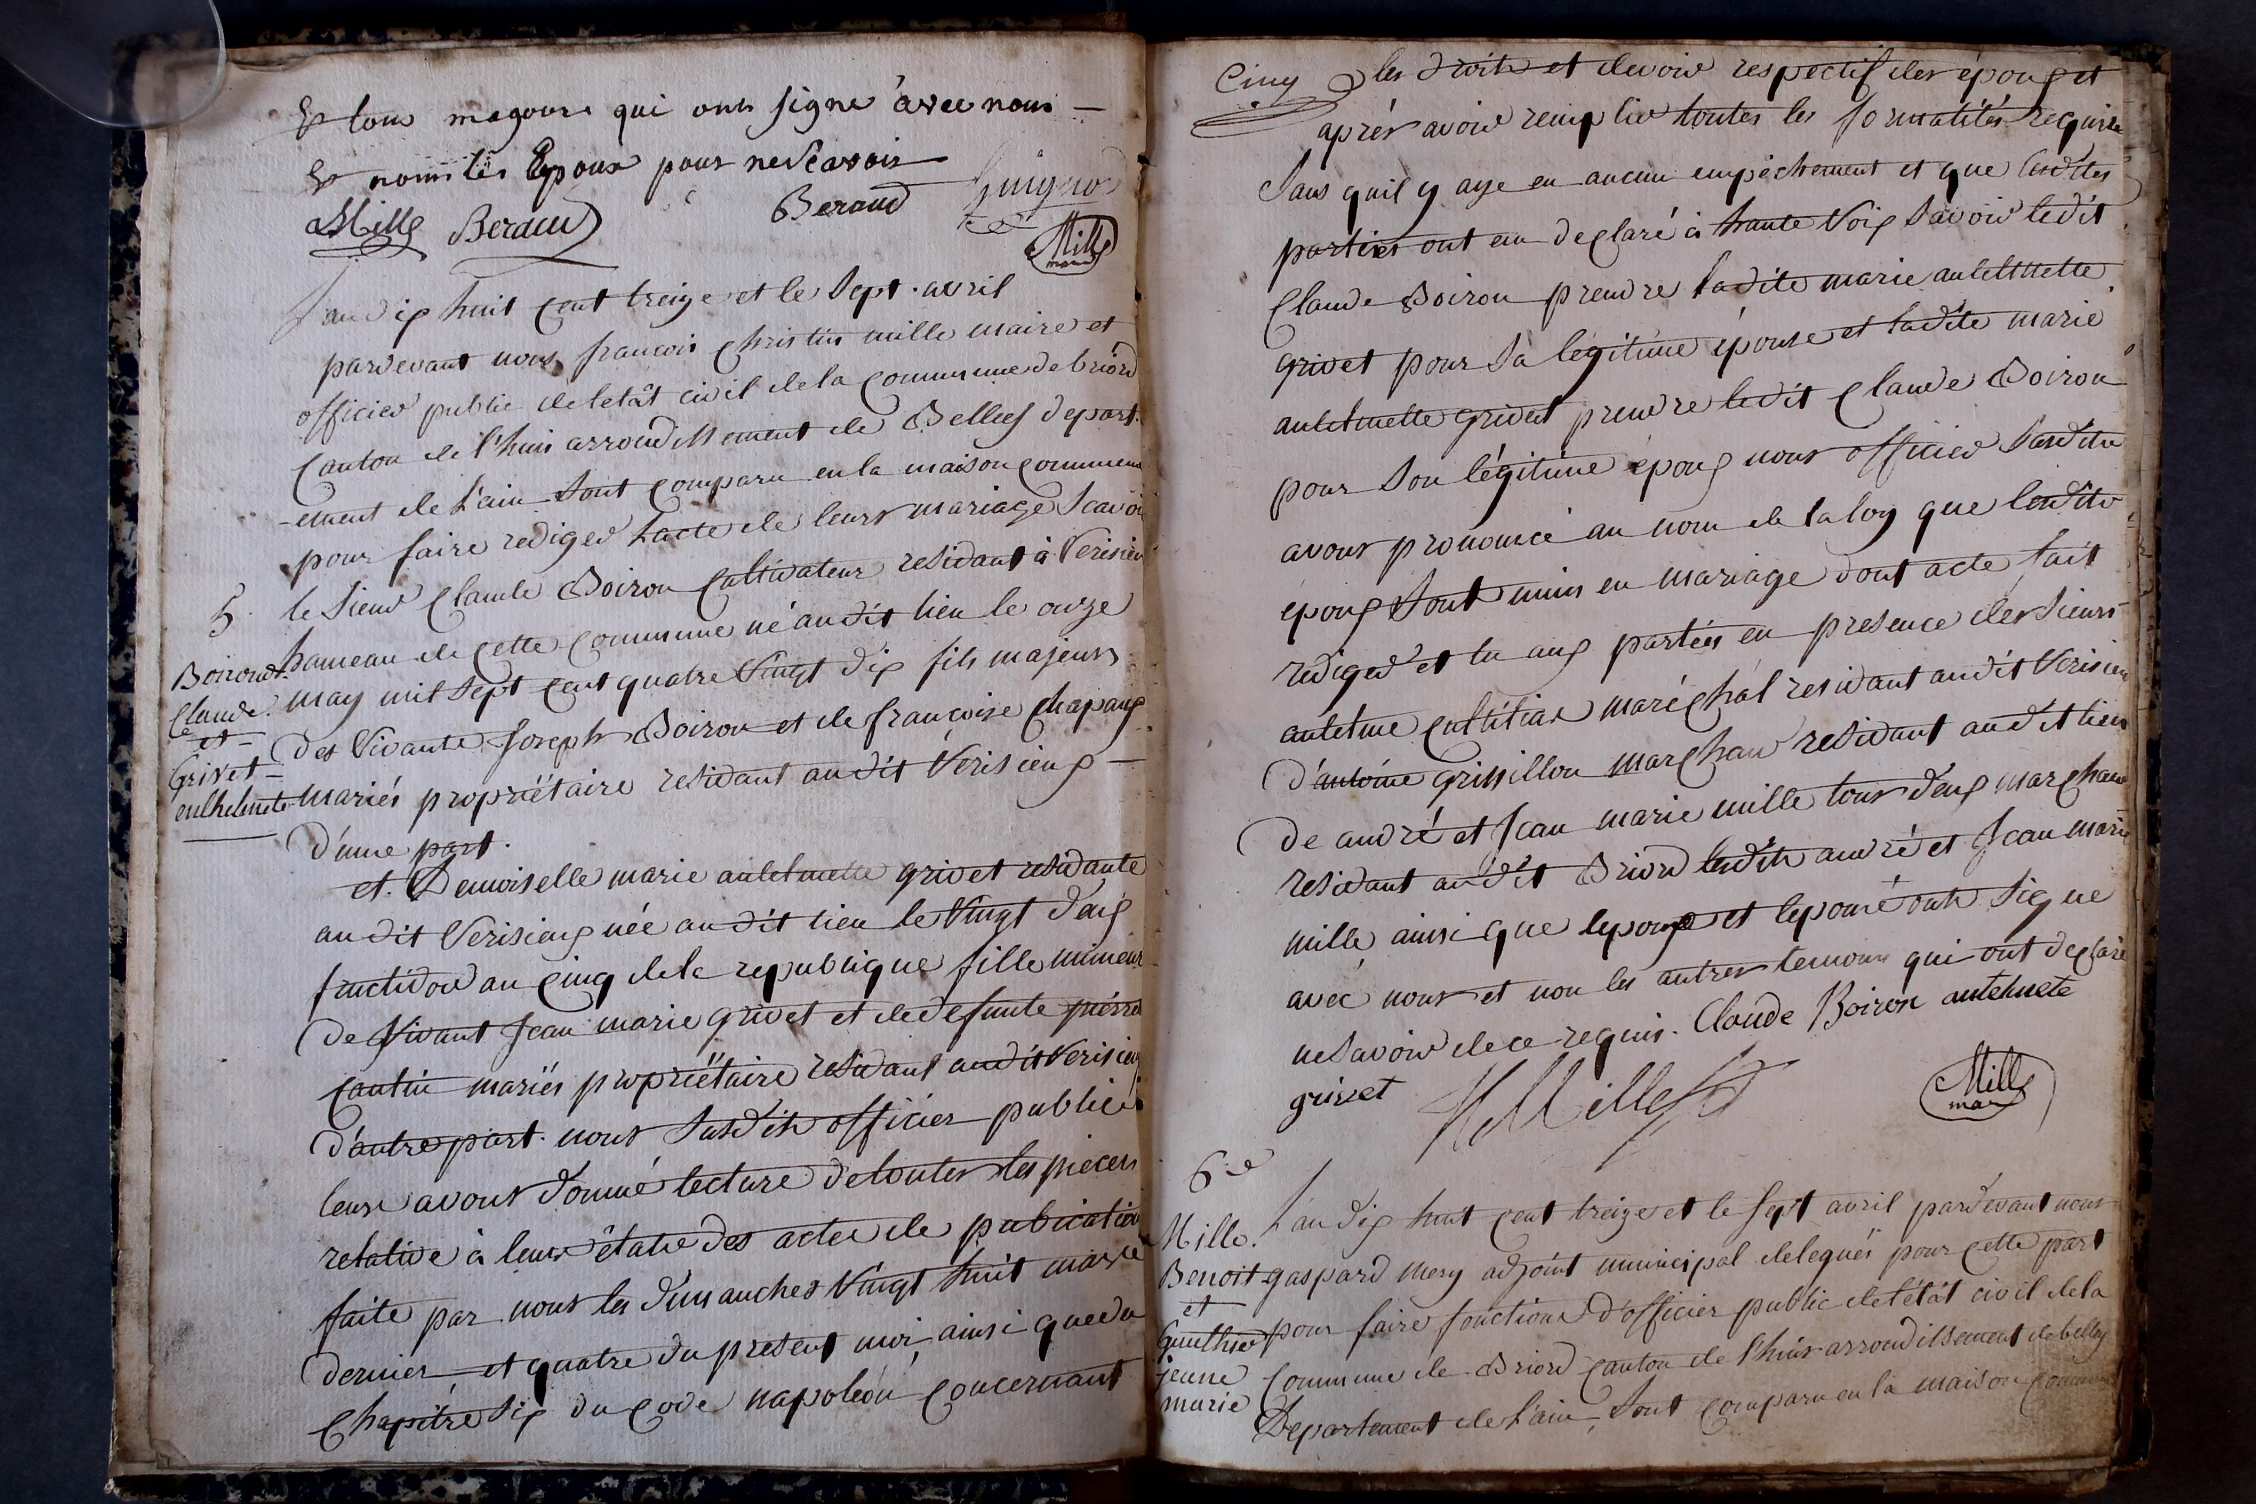 Et tous magours qui ont signé avec nous —
Et nom les Epoux pour ne scavoir
Mille Beraud Beraud Guignod
Mille
maire
L'an dix huit cent treize et le sept avril
pardevant nous françois christin mille maire et
officier public de letât civil de la commune de briord
Canton de l'huis arrondissement de Belley depart-
-ement de L'ain sont comparu en la maison commune
pour faire rediger Lacte de leurs mariage Scavoir
le Sieur Claude Boiron Cultivateur residant à Verisieu
5.
hameau de cette commune né audit lieu le onze
Boiron
Claude
et
Grivet
enlhelmete
may mil sept cent quatre vingt dix fils majeurs
des vivants Joseph Boiron et de françoise Chapaux
mariés propriétaire residant audit Verisieux —
d'une part.
et Demoiselle marie antelmette grivet residante
audit Verisieux née audit lieu le vingt deux
fructidor an cinq de la republique fille mineur
de vivant Jean marie grivet et de defunte pierrre
Cantin mariés propriétaire residant audit Verisieux
d'autre part. nous susdits officier publics
leurs avons donné lecture de toutes les pieces
relative à leurs états des actes de publication
faite par nous les dimanches vingt huit mars
dernier et quatre du present moi, ainsi que du
Chapitre six du Code napoléon concernant
Cinq les droits et devoir respectif des époux et
après avoir remplir toutes les formalités requise
Sans quil y aye eu aucun empéchement et que lesdites
parties ont eu declaré à haute voix savoir ledit
Claude Boiron prendre ladite marie antelmette
grivet pour sa légitime épouse et ladite marie
antelmette grivet prendre ledit Claude Boiron
pour son légitime époux nous officier susdits
avons prononcé au nom de la loy que lesdits
époux sont unis en mariage dont acte fait
rediger et lu aux parties en presence des sieurs
antelme maréchal residant audit Verisieu
d'antoine grissillon marchand residant audit lieu
de andré et Jean marie mille tous deux marchand
residant audit Briord lesdits andré et Jean marie
mille ainsi que lepoux et lepouse onts signé
avec nous et non les autres temoins qui ont declaré
ne savoir de ce requis. Claude Boiron antelmete
grivet Mille
Mille
maire
6e
Mille
Benoit
et
Gunthier
jeune
marie
L'an dix huit cent treize et le sept avril pardevant nous
gaspard mery adjoint municipal delegués pour cette part
pour faire fonctions d'officier public de l'étât civil de la
Commune de Briord canton de l'huis arrondissement de belley
Departement de L'ain, sont comparu en la maison commune